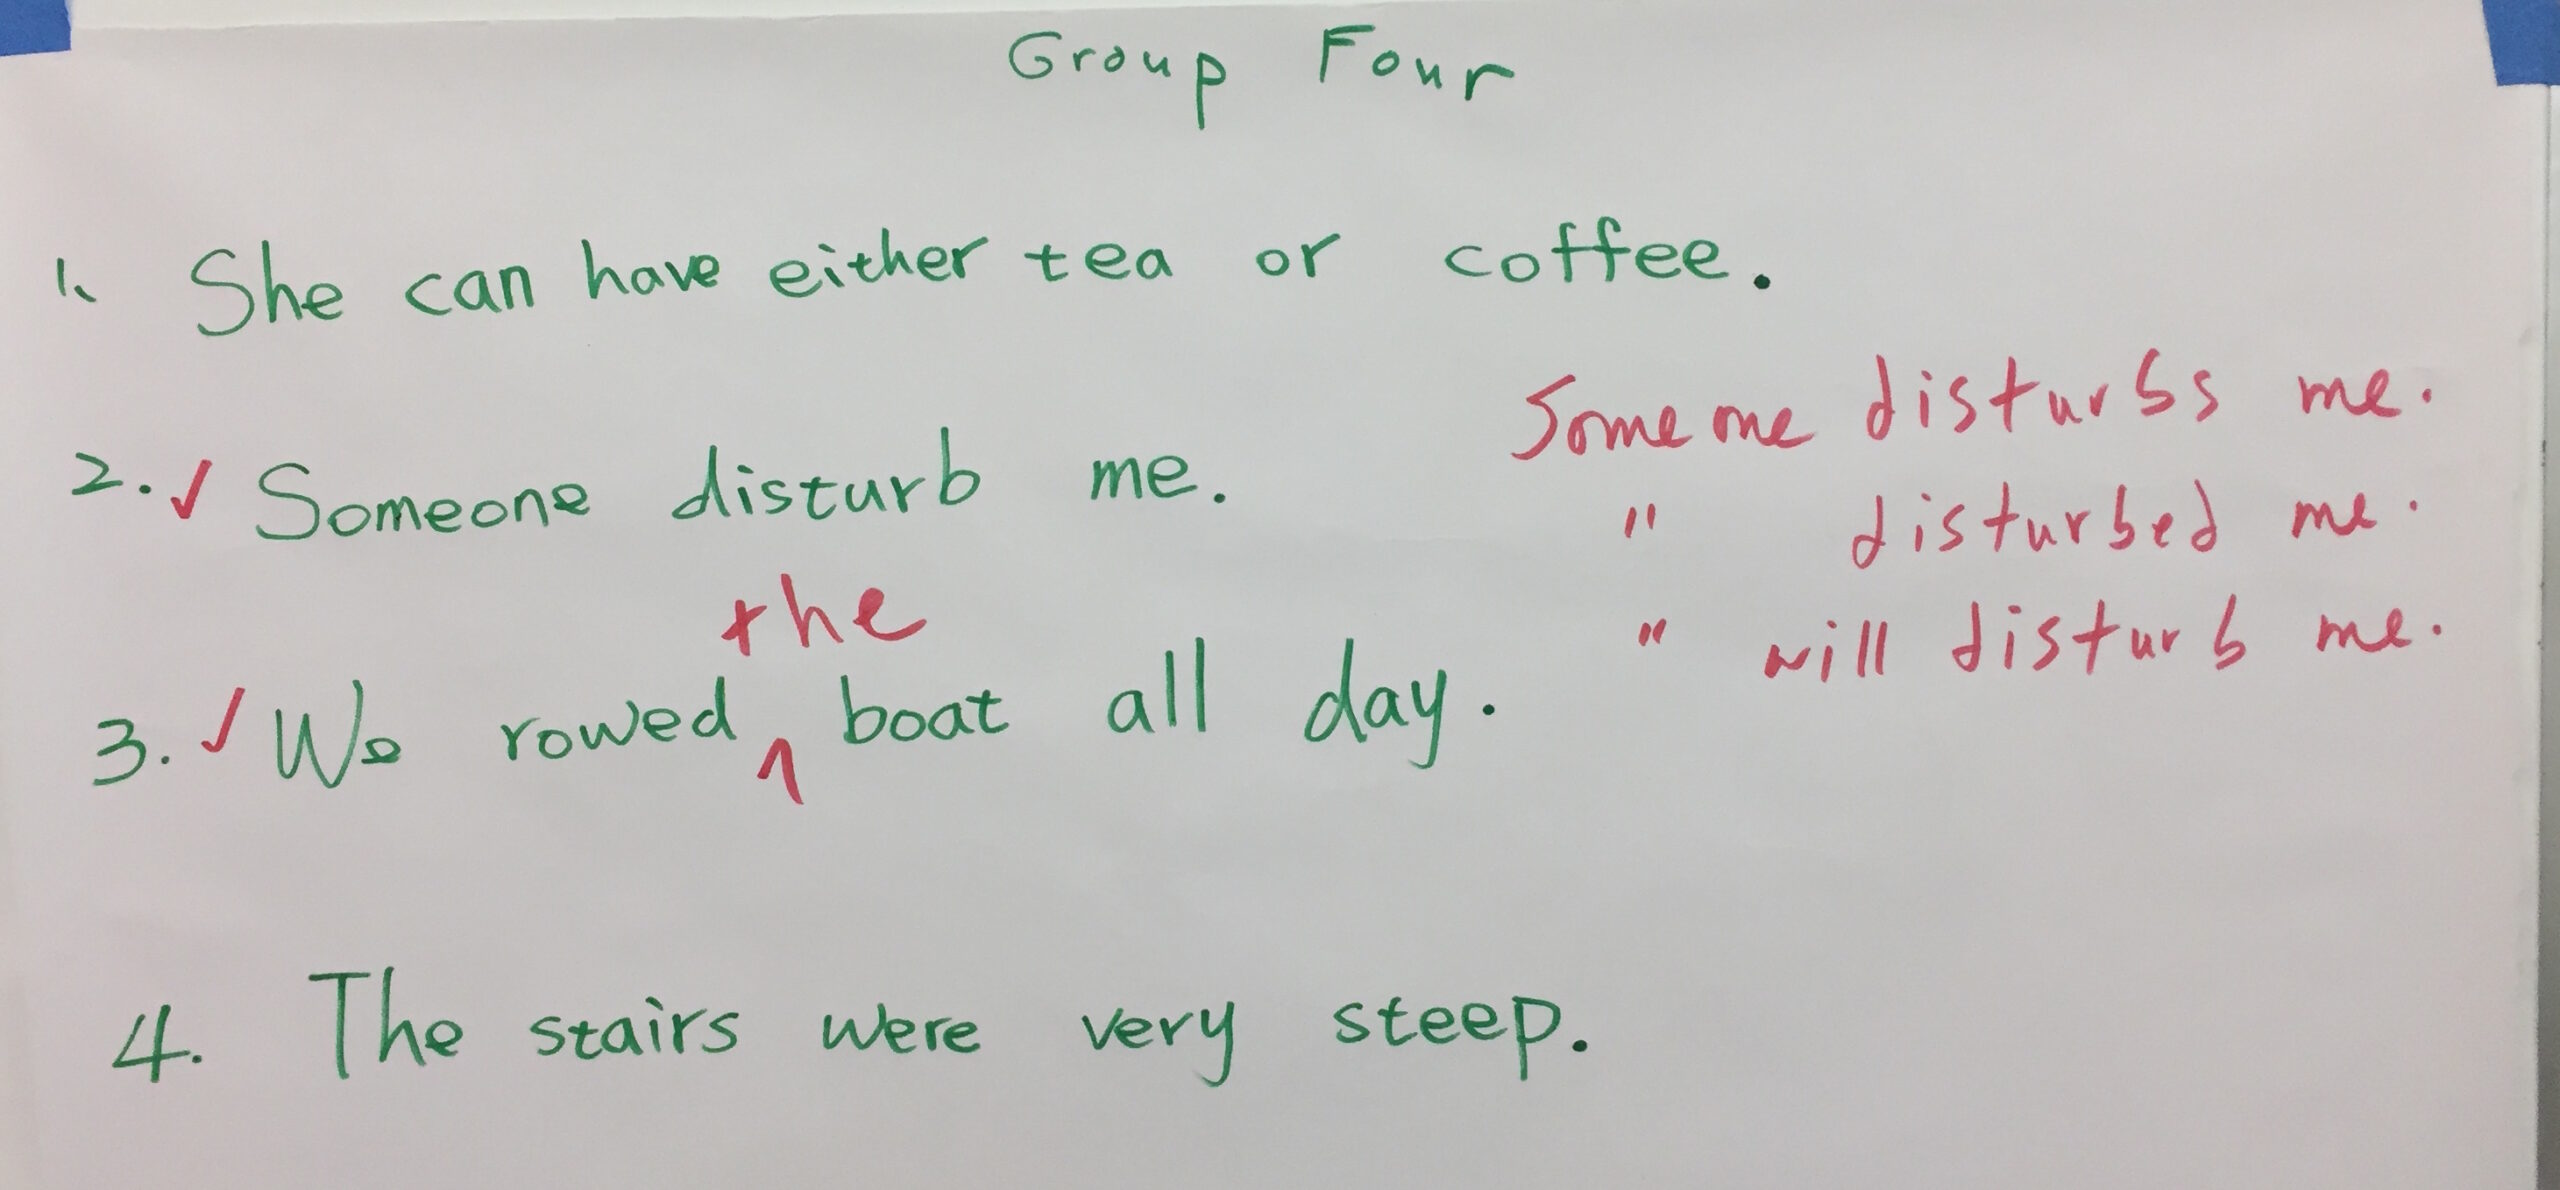 Group Four
1. She can have either tea or coffee.
Someone disturbs me.
2. ✓ Someone disturb me.
" disturbed me.
the
" will disturb me.
3. ✓ We rowed ^ boat all day.
4. The stairs were very steep.